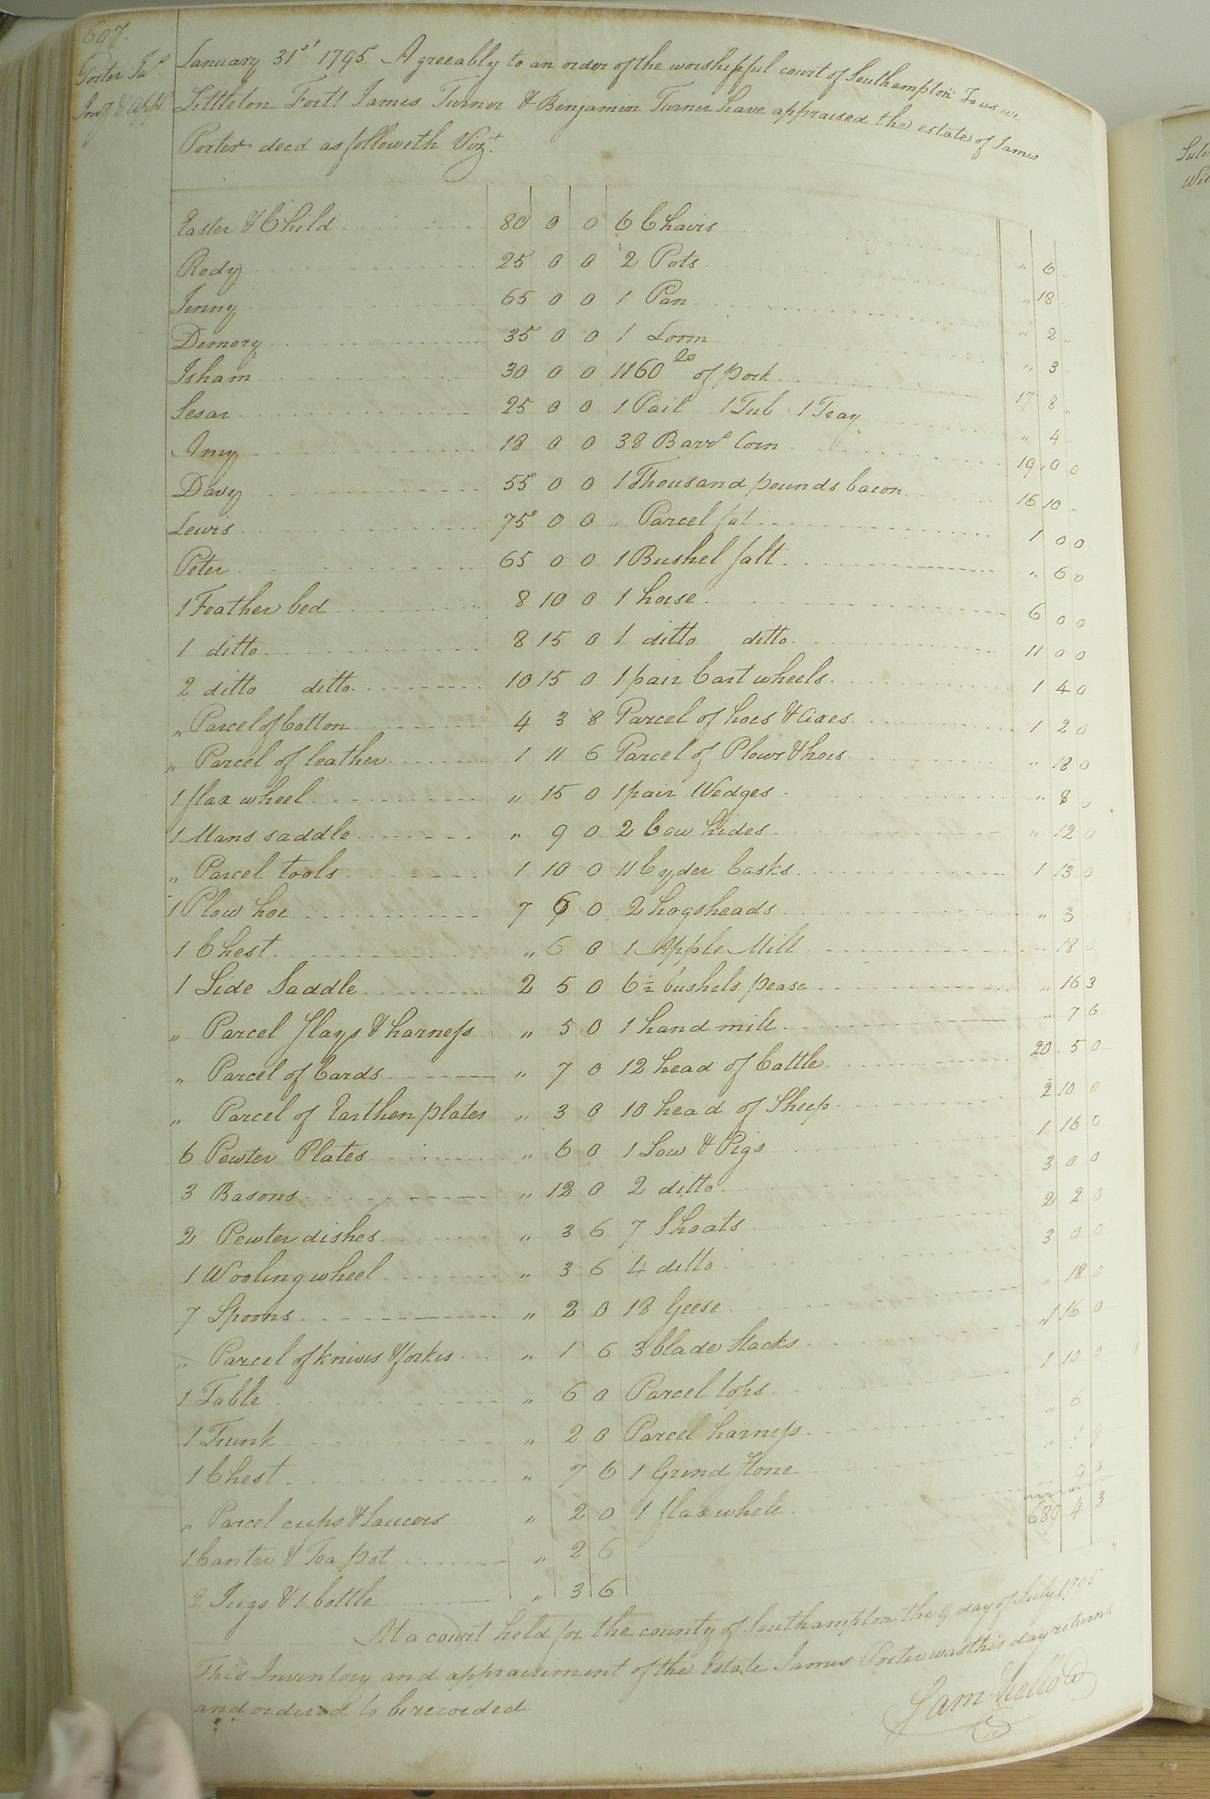 697.
Porter Jas.
Inv & Appt
January 31st 1795. Agreeably to an order of the worshipful court of Southampton
Littleton Fort James Turner & Benjamin Turner have appraised the estate of James
Porter decd as followeth Vizt.
Easter & Child 80 0 0
Rody 25 0 0
Jinny 65 0 0
Demory 35 0 0
Isham 30 0 0
Sesar 25 0 0
Amy 18 0 0
Davy 55 0 0
Lewis 75 0 0
Peter 65 0 0
1 Feather bed 8 10 0
1 ditto 8 15 0
2 ditto ditto 10 15 0
" Parcel of Cotton 4 3 8
" Parcel of leather 1 11 6
1 flax wheel " 15 0
1 Mans saddle " 9 0
" Parcel tools 1 10 0
1 Plow hoe 7 6 0
1 Chest " 6 0
1 Side Saddle 2 5 0
" Parcel slays & harness " 5 0
" Parcel of Cards " 7 0
" Parcel of Earthen plates " 3 0
6 Pewter Plates " 6 0
3 Basons " 12 0
2 Pewter dishes " 3 6
1 Wooling wheel " 3 6
7 Spoons " 2 0
" Parcel of knives & forkes " 1 6
1 Table " 6 0
1 Trunk " 2 0
1 Chest " 7 6
" Parcel cups & saucers " 2 0
1 Canter & Tea pot " 2 6
2 Jugs & 1 bottle " 3 6
6 Chairs " 6
2 Pots " 18
1 Pan " 2
1 Loom " 3
1160 lb of pork 17 8
1 Pail 1 Tub 1 Tray " 4
38 Barrs Corn 19 0 0
1 Thousand pounds bacon 16 10
" Parcel fat 1 0 0
1 Bushel salt " 6 0
1 horse 6 0 0
1 ditto ditto 11 0 0
1 pair Cart wheels 1 4 0
Parcel of hoes & axes 1 2 0
Parcel of Plows & hoes " 18 0
1 pair Wedges " 8 0
2 Cow hides " 12 0
11 Cyder Casks 1 13 0
2 hogsheads " 3
1 Apple Mill " 18 0
6½ bushels pease " 16 3
1 hand mill " 7 6
12 head of Cattle 20 5 0
10 head of Sheep 2 10 0
1 Sow & Pigs 1 16 0
2 ditto 3 0 0
7 Shoats 2 2 0
4 ditto 3 0 0
18 Geese 18 0
3 blade Stacks 1 16 0
Parcel tops 1 10 0
Parcel harness " 6
1 Grind Stone
1 flax whele
689 4 3
At a court held for the county of Southampton the 9 day of July 1795
This Inventory and appraisement of the Estate James Porter was this day returned
and ordered to be recorded
Sam Kello